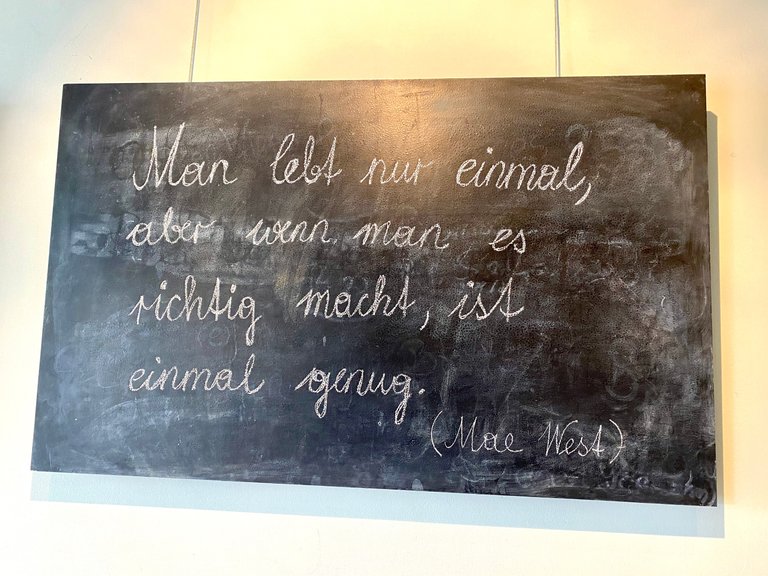 Man lebt nur einmal,
aber wenn man es
richtig macht, ist
einmal genug.
(Mae West)